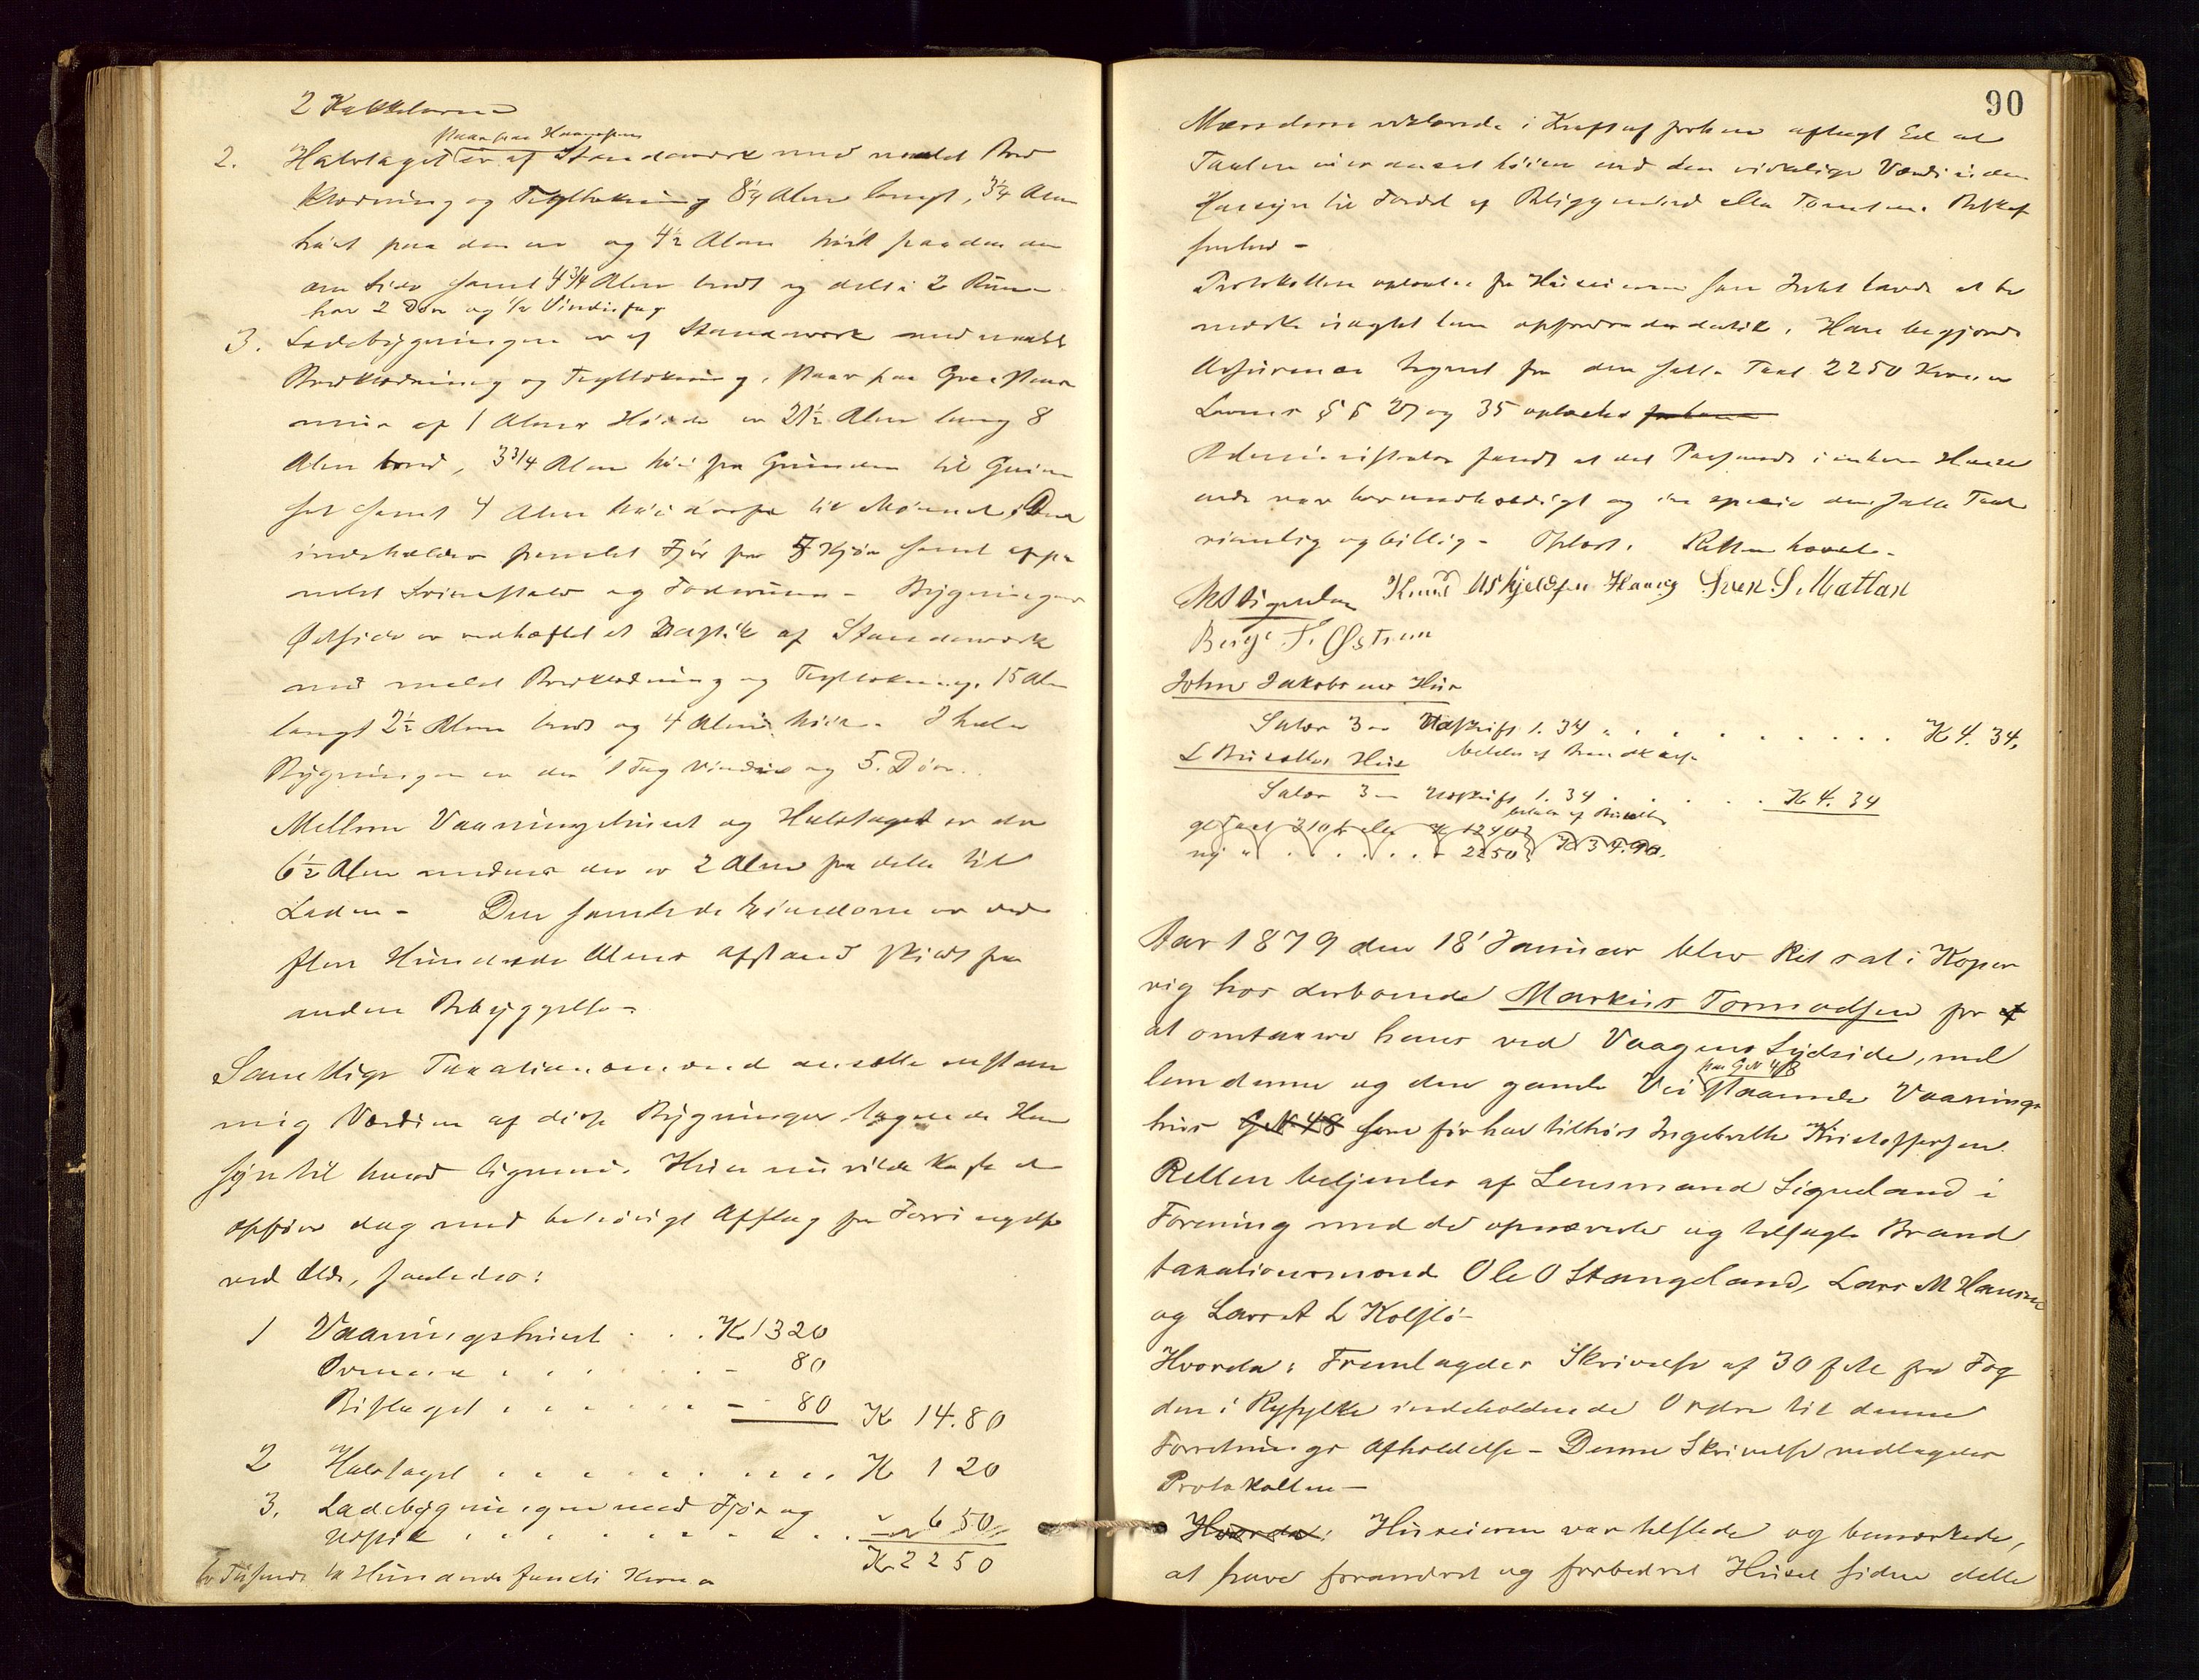 2 Kakkelovne
staar paa
2. Halvtaget er af Standværk med malet Bord
klædning og Tegltækning 8 1/4 Alen langt, 3 1/4 Alen
høit paa den ene og 4 1/2 Alen høit paa den an
den Side samt 4 3/4 Alen bredt og delt i 2 Rum
har 2 Døre og 1/2 Vindusfag
3. Ladebygningen er af Standværk med malet
Bordklædning og Tegltækning, staar paa Graastens
mur af 1 Alens Høide er 21 1/2 Alen lang 8
Alen bred, 3 3/4 Alen høi fra Grunden til Gesim
set samt 4 Alen høi derfra til Mønnet. Den
indeholder panelet Fjøs for 7 Kjør samt
Svinestald og Foderrum - Bygningens
Østside er vedhæftet et Udskik af Standværk
med malet Bordklædning og Tegltækning, 15 Alen
langt 2 1/2 Alen bredt og 4 Alen høit. I hele
Bygningen er der 1 Fag Vindue og 5 Døre.
Mellem Vaaningshuset og Halvtaget er der
6 1/2 Alen medens der er 2 Alen fra dette til
Laden - Den samlede Eiendom er ved
flere Hundrede Alens Afstand skildt fra
anden Bebyggelse -
Samtlige Taxationsmænd ansatte enstem
mig Værdien af disse Bygninger tagende Hen
syn til hvad lignende Huse nu vilde koste at
opføre dog med behørigt Afslag for Forringelse
ved Ælde, saaledes:
1 Vaaningshuset . . . K 1320
Ovnene . . . . . - 80
Bislaget . . . . . - 80 Kr 14.80
2 Halvtaget . . . . . . . . Kr 120
3. Ladebygningen med Fjøs og
Udskik . . . . . . . . " 650
Kr 2250
to Tusinde to Hundrede femti Kroner
90
Mændene erklærede i Kraft af forhen aflagt Ed at
Taxten ei er ansat høiere end den virkelige Værdi uden
Hensyn til Fordel af Beliggenhed eller Tomtens Beskaf
fenhed -
Protokollen oplæstes for Huseieren som Intet havde at be
mærke uagtet han opfordredes dertil. Han begjærede
Assurance tegnet for den fulde Taxt 2250 Kroner
Lovens §§ 27 og 35 oplæstes
Administrator fandt at det Passerede i enhver Hense
ende var lovmedholdigt og in specie den satte Taxt
rimelig og billig - Oplæst. Retten hævet.
Sigueland Knud Askjeldsen Haavig Sven S. Matlan
Berge T. Østrem
John Jakobsens Hus
Salær 3 - Udskrift 1.34 . . . . . . . . . . K 4.34,
betales af Brandkass
L Hus
Salær 3 - Udskrift 1.34 . . . . . Kr 4.34
gl Taxt 310 Spd eller Kr 1240
ny " . . . . . . - 2250
Aar 1879 den 18' Januar blev Ret sat i Koper
vig hos derboende Markus Tormodsen for
at omtaxere hans ved Vaagens Sydside, mel
lem denne og den gamle Vei staaende Vaanings
paa G N 48
hus G N 48 som før har tilhørt Ingebrette Kristoffersen
Retten betjentes af Lensmand Sigueland i
Forening med de opnævnte og tilsagte Brand
taxationsmænd Ole O Stangeland, Lars M Hansen
og Lars A L Kolstø -
Hvorda: Fremlagdes Skrivelse af 30 f M fra Fog
den i Ryfylke indeholdende Ordre til denne
Forretnings Afholdelse - Denne Skrivelse vedlagdes
Protokollen -
Hvorda: Huseieren var tilstede og bemærkede,
at have forandret og forbedret Huset siden dette